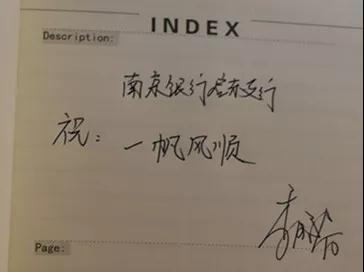 INDEX
Description:
南京银行启东支行
祝：
一帆风顺
Page: